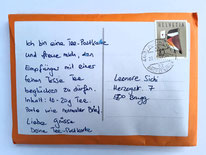 Ich bin eine Tee-Postkarte
und freue mich, den
Empfänger mit einer
feinen Tasse Tee
beglücken zu dürfen.
Inhalt: 10-20g Tee
Porto wie normaler Brief.
Liebe Grüsse
Deine Tee-Postkarte
HELVETIA
Leonore Sich
Herzogstr. 7
5200 Brugg